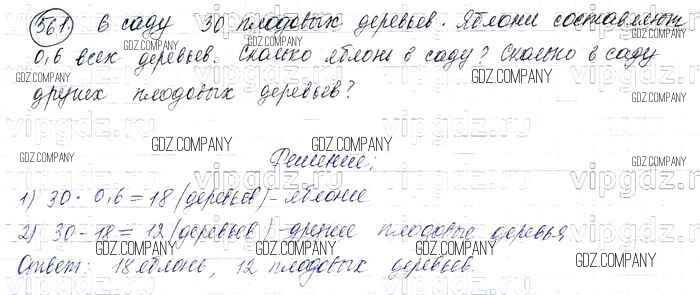 561. В саду 30 плодовых деревьев. Яблони составляют
0,6 всех деревьев. Сколько яблонь в саду? Сколько в саду
других плодовых деревьев?
Решение:
1) 30 · 0,6 = 18 (деревьев) - яблони
2) 30 - 18 = 12 (деревьев) - другие плодовые деревья
Ответ: 18 яблонь, 12 плодовых деревьев.
GDZ.COMPANY
vipgdz.ru